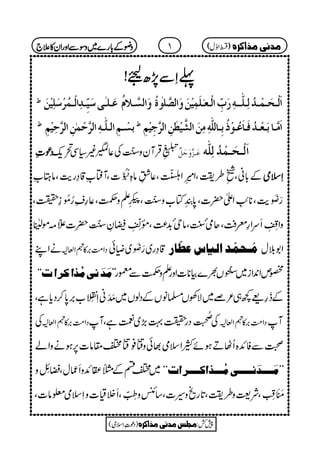 مدنی مذاکرہ (قسط اوّل)
۱
وضو کے بارے میں وسوسے اور ان کا علاج
پہلے اِسے پڑھ لیجئے!
اَلْحَمْدُ لِلّٰہِ رَبِّ الْعٰلَمِیْنَ وَالصَّلٰوۃُ وَالسَّلَامُ عَلٰی سَیِّدِ الْمُرْسَلِیْنَ ط
اَمَّا بَعْدُ فَاَعُوْذُ بِاللّٰہِ مِنَ الشَّیْطٰنِ الرَّجِیْمِ ط بِسْمِ اللّٰہِ الرَّحْمٰنِ الرَّحِیْمِ ط
اَلْحَمْدُ لِلّٰہ عَزَّوَجَلَّ تبلیغِ قرآن و سنّت کی عالمگیر غیر سیاسی تحریک دعوتِ
اسلامی کے بانی، شیخِ طریقت، امیرِ اہلسنّت، عاشقِ ماہِ نُبُوَّت، آفتابِ قادِرِیت، ماہتابِ
رَضَوِیت، نائبِ اعلیٰ حضرت، پابندِ کتاب و سنّت، پیکرِ علم و حکمت، عارِفِ رُمُوزِ حقیقت،
واقِفِ اَسرارِ معرفت، حامیِ سنّت، ماحیِ بدعت، مُؤلِّفِ فیضانِ سنّت حضرت علّامہ مولٰینا
ابو بلال مُحمّد الیاس عطّار قادِری رَضَوی ضیائی دامت برکاتہم العالیہ نے اپنے
مخصوص انداز میں سنّتوں بھرے بیانات اور علم و حکمت سے معمور ”مَدَنی مُذاکرات“
کے ذریعے کچھ ہی عرصے میں لاکھوں مسلمانوں کے دلوں میں مَدَنی اِنقِلاب برپا کر دیا ہے،
آپ دامت برکاتہم العالیہ کی صحبت درحقیقت بہت بڑی نعمت ہے، آپ دامت برکاتہم العالیہ کی
صحبت سے فائدہ اُٹھاتے ہوئے کثیر اسلامی بھائی وقتاً فوقتاً مختلف مقامات پر ہونے والے
”مَدَنی مُذاکرات“ میں مختلف قسم کے مثلاً عقائد و اَعمال، فضائل و
مَناقِب، شریعت و طریقت، تاریخ و سیرت، سائنس و طِبّ، اَخلاقیات و اِسلامی معلومات،
پیش کش: مجلس مدنی مذاکرہ (دعوتِ اسلامی)